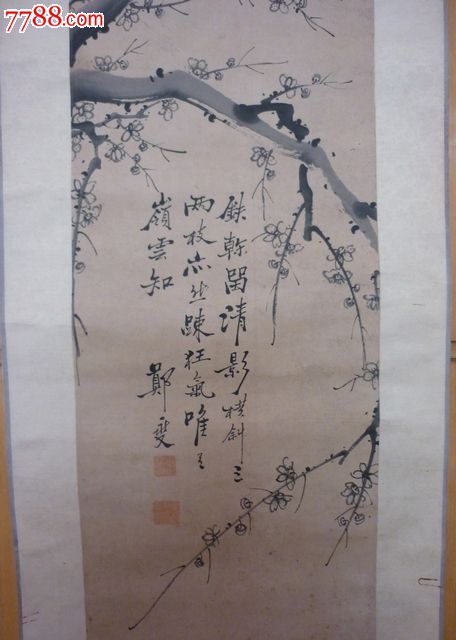 7788.com
鉄幹留清影橫斜三
两枝亦無踈狂氣唯有
嶺雲知
鄭燮